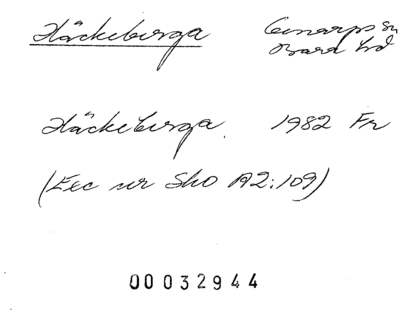 Häckeberga Genarps sn
Bara hd
Häckeberga. 1982 Fr
(Exc ur Sho A2:109)
00032944